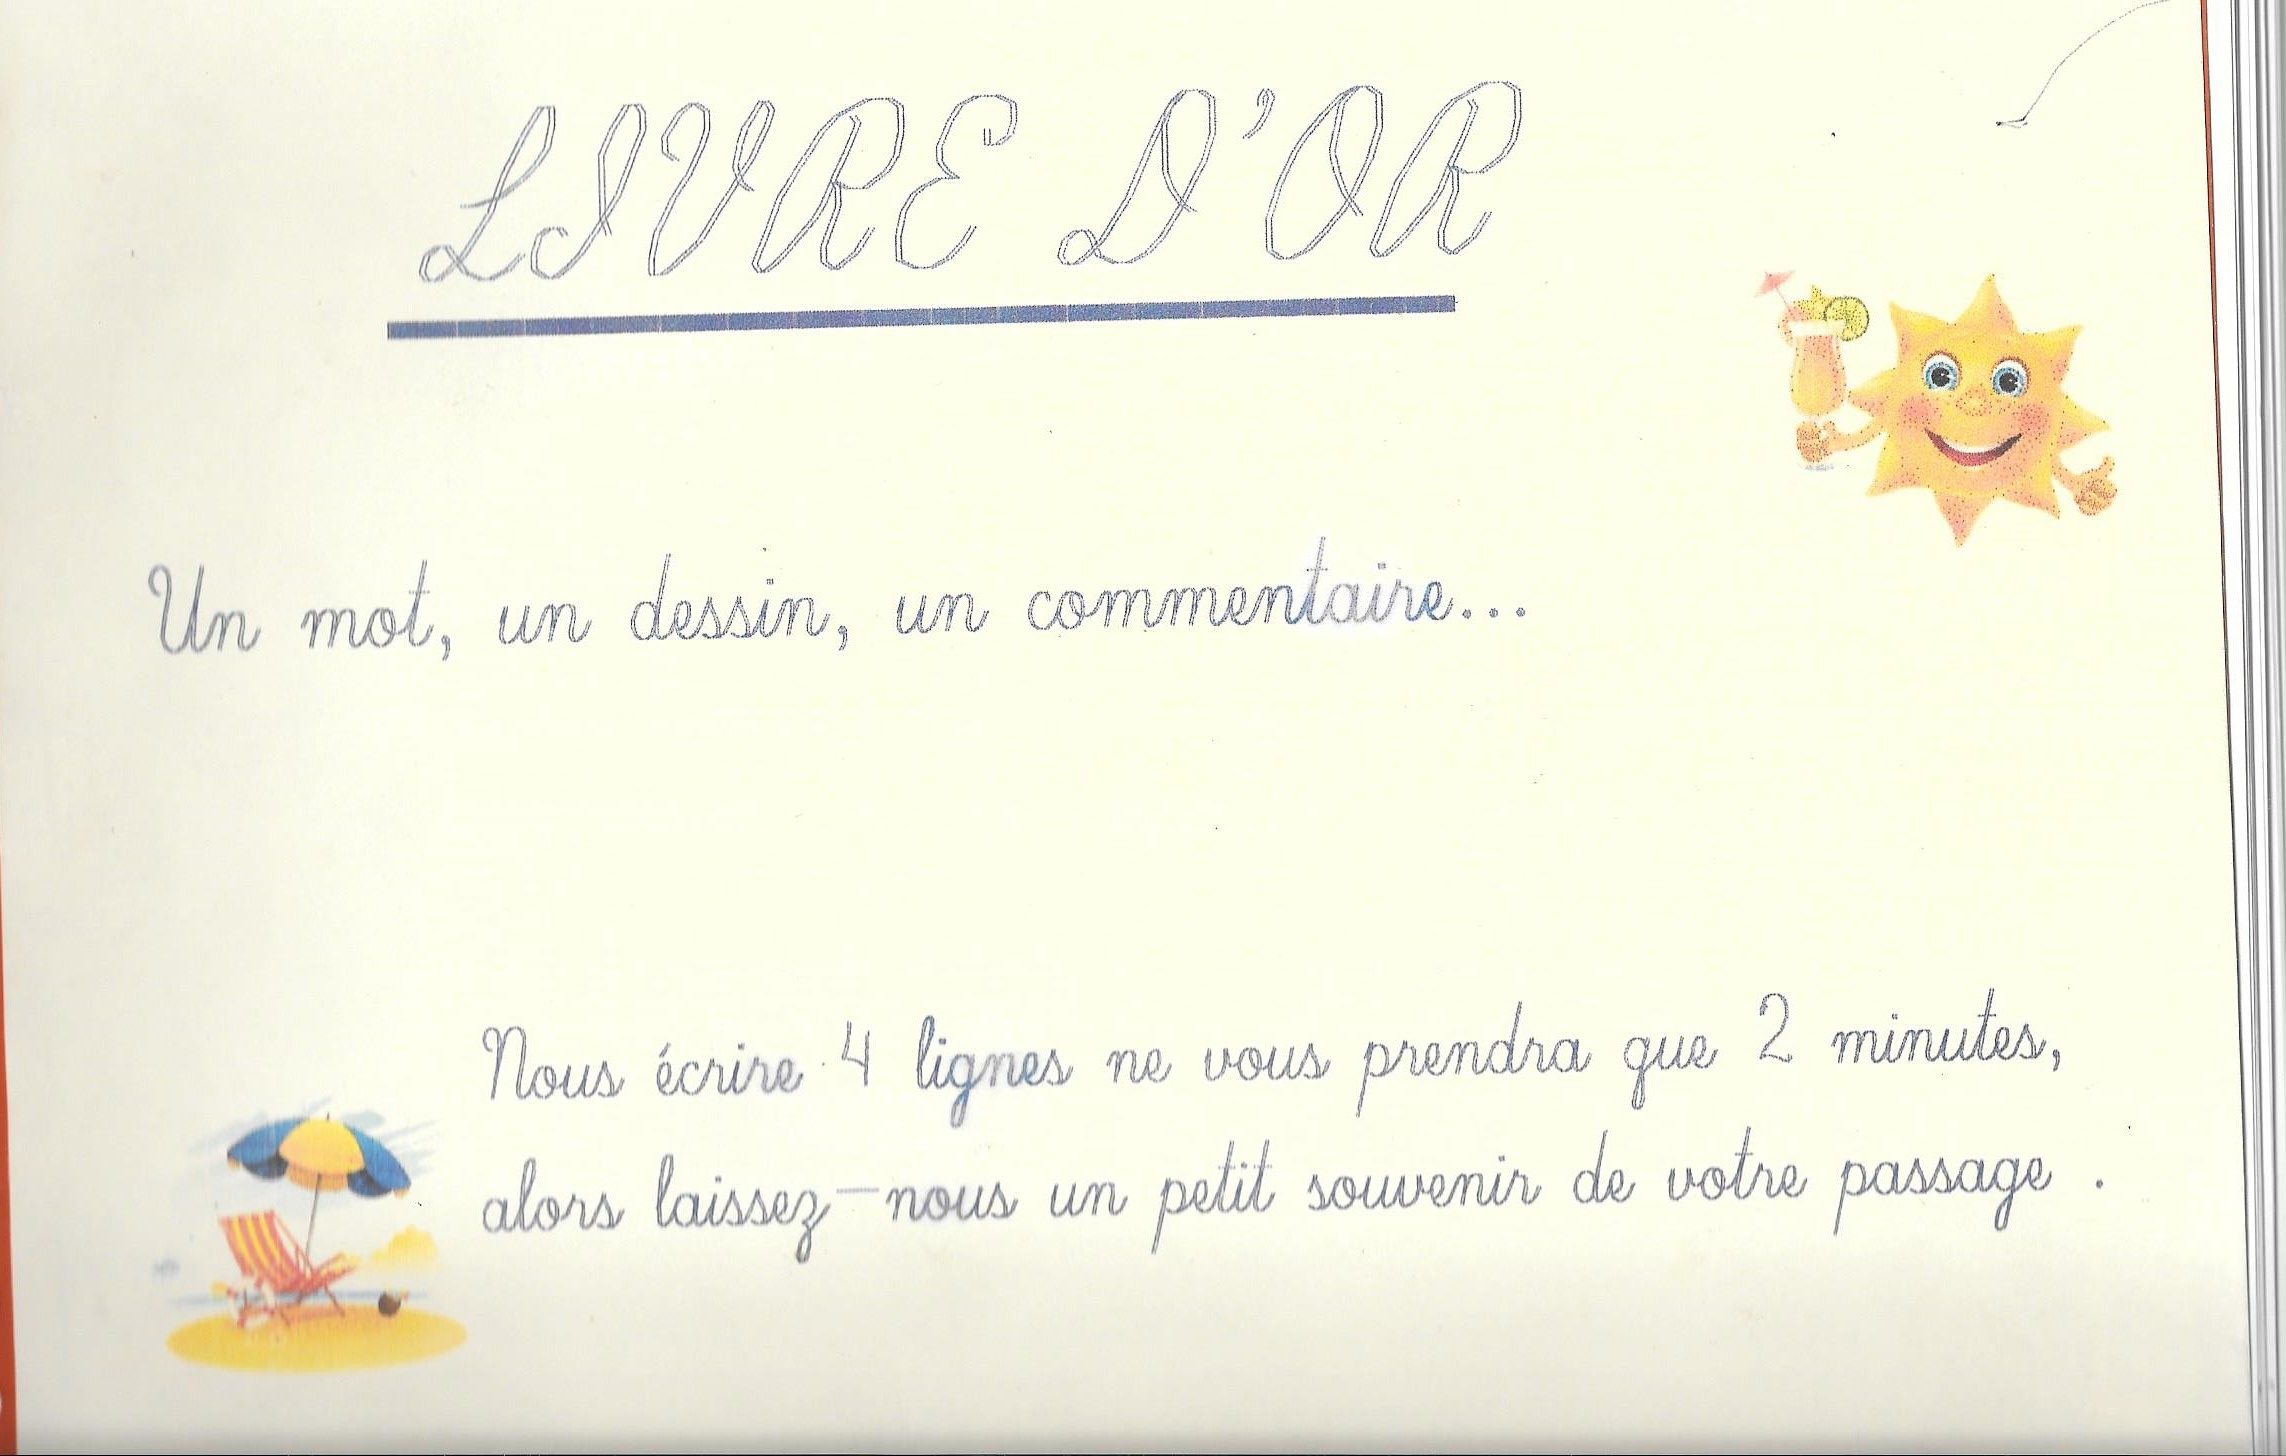 LIVRE D'OR
Un mot, un dessin, un commentaire...
Nous écrire 4 lignes ne vous prendra que 2 minutes,
alors laissez-nous un petit souvenir de votre passage .